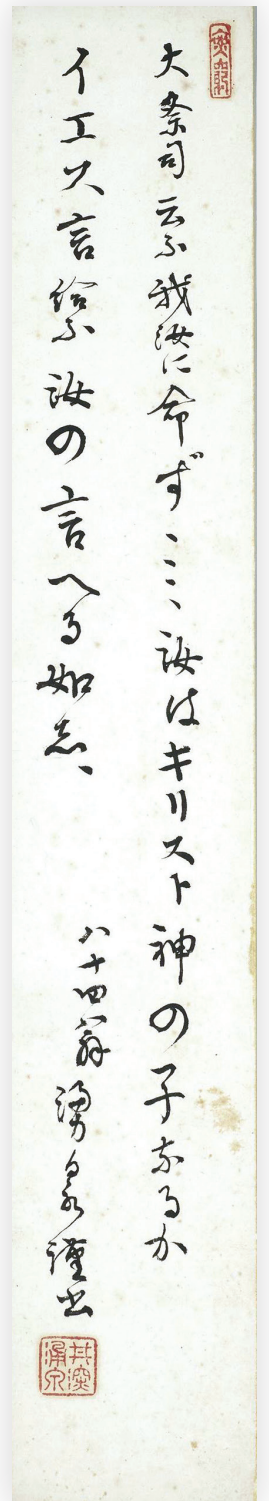 大祭司云ふ我汝に命ず ミミ、汝はキリスト神の子なるか
イエス言給ふ汝の言へる如し、
八十四翁湧泉謹書